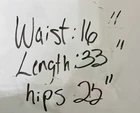 Waist: 16"
Length: 33"
hips 25"